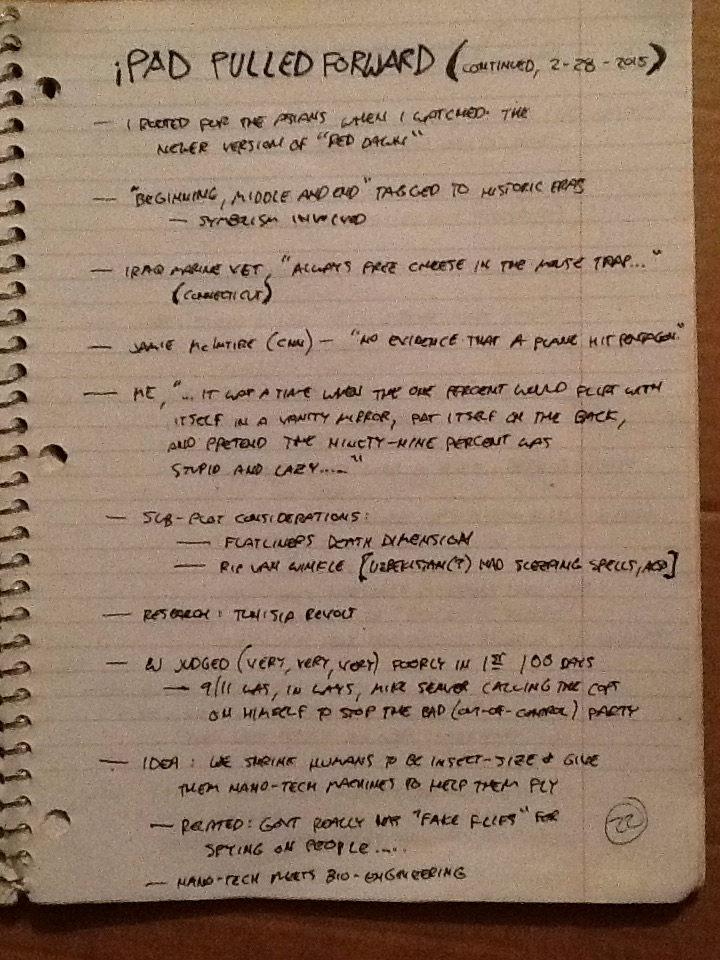 iPAD PULLED FORWARD (CONTINUED, 2-28-2015)
— I ROOTED FOR THE ASIANS WHEN I WATCHED THE
NEWER VERSION OF "RED DAWN"
— "BEGINNING, MIDDLE AND END" TAGGED TO HISTORIC ERAS
— SYMBOLISM INVOLVED
— IRAQ MARINE VET, "ALWAYS FREE CHEESE IN THE MOUSE TRAP..."
(CONNECTICUT)
— JAMIE McINTIRE (CNN) — "NO EVIDENCE THAT A PLANE HIT PENTAGON."
— ME, "... IT WAS A TIME WHEN THE ONE PERCENT WOULD FLIRT WITH
ITSELF IN A VANITY MIRROR, PAT ITSELF ON THE BACK,
AND PRETEND THE NINETY-NINE PERCENT WAS
STUPID AND LAZY....."
— SUB-PLOT CONSIDERATIONS:
— FLATLINERS DEATH DIMENSION
— RIP VAN WINKLE [UZBEKISTAN(?) HAD SLEEPING SPELLS, ALSO]
— RESEARCH: TUNISIA REVOLT
— W JUDGED (VERY, VERY, VERY) POORLY IN 1ST 100 DAYS
— 9/11 WAS, IN WAYS, MIKE SEAVER CALLING THE COPS
ON HIMSELF TO STOP THE BAD (OUT-OF-CONTROL) PARTY
— IDEA: WE SHRINK HUMANS TO BE INSECT-SIZE & GIVE
THEM NANO-TECH MACHINES TO HELP THEM FLY
— RELATED: GOVT REALLY HAS "FAKE FLIES" FOR
SPYING ON PEOPLE....
— NANO-TECH MEETS BIO-ENGINEERING
22